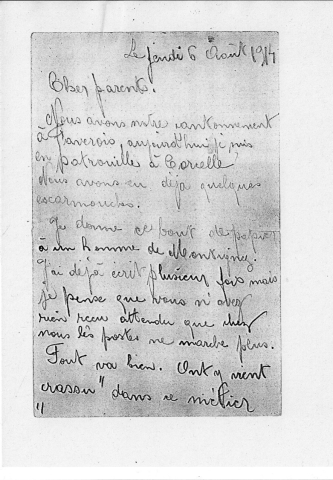 Le jeudi 6 Août 1914
Cher parents.
Nous avons notre cantonnement
à aujourd'hui je suis
en patrouilles à
Nous avons eu déjà quelques
escarmouches.
Je donne ce bout de papier
à un homme de Montigny.
J'ai déjà écrit plusieur fois mais
je pense que vous n'avez
rien recu attendu que chez
nous les postes ne marche plus.
Tout va bien. On y vient
crassu" dans ce métier
"